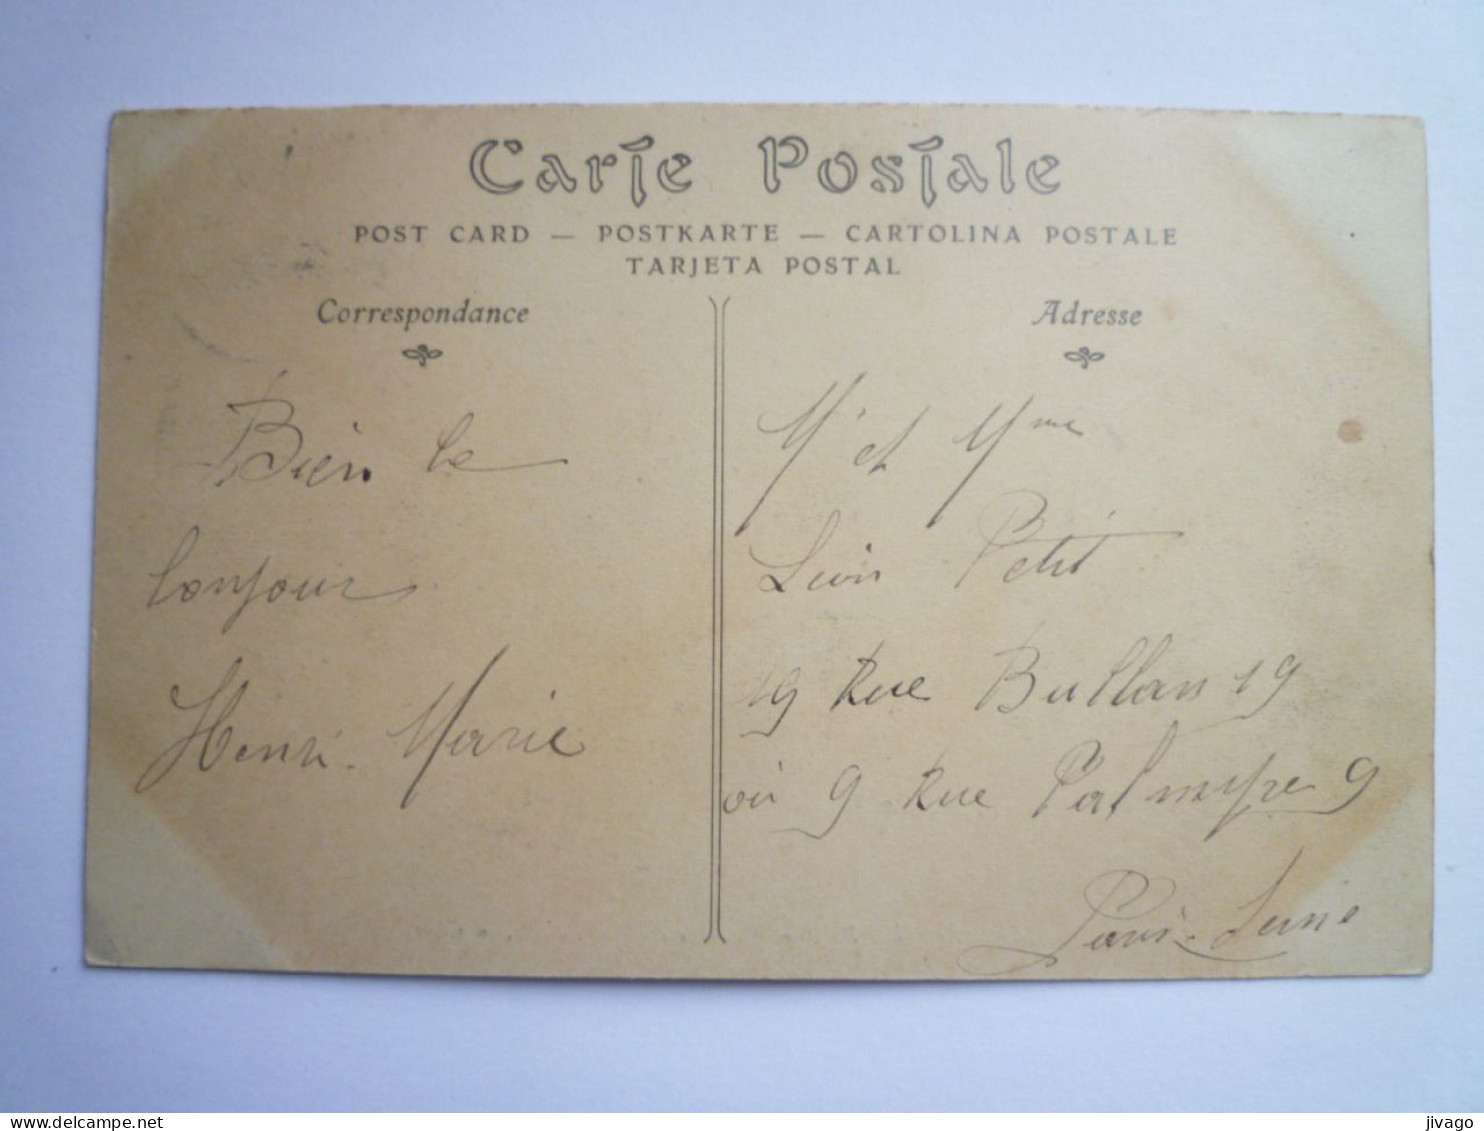 Carte Postale
POST CARD — POSTKARTE — CARTOLINA POSTALE
TARJETA POSTAL
Correspondance
Bien le
bonjour
Henri. Marie
Adresse
Mr et Mme
Léon Petit
19 Rue Bullan 19
ou 9 Rue Palmyre 9
Paris - Seine
delcampe.net
jivago